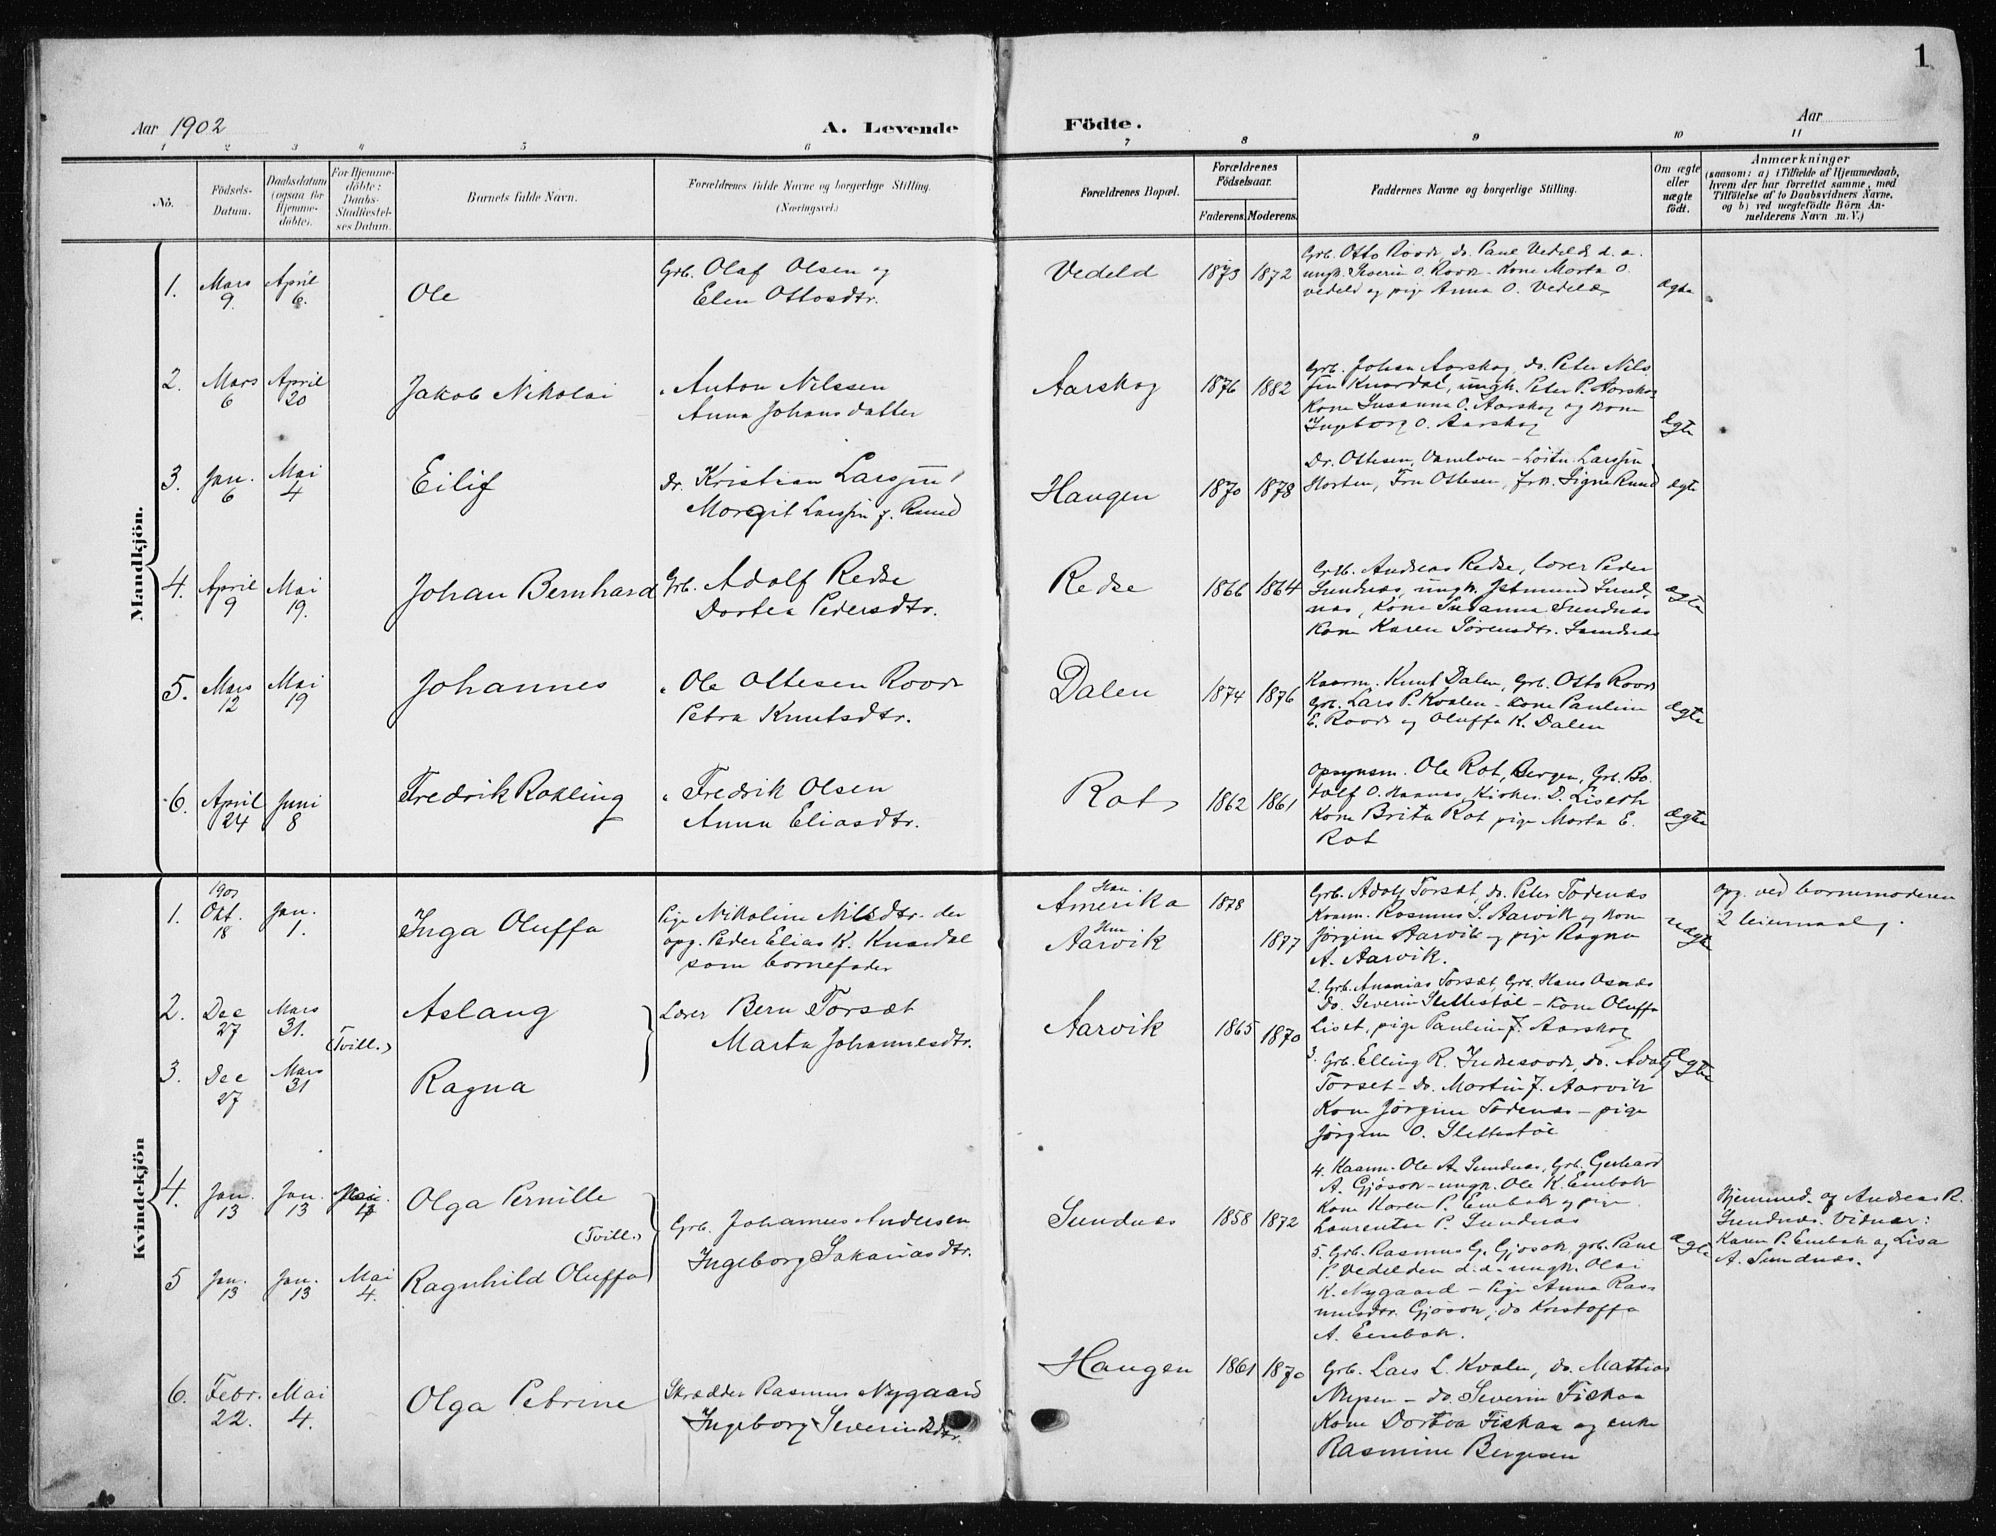 1
Aar 1902
A. Levende Födte.
Aar
1 2 3 4 5 6 7 8 9 10 11
No.
Födsels-
Datum.
Daabsdatum
(ogsaa for
Hjemme-
döbte).
For Hjemme-
döbte:
Daabs-
Stadfæstel-
ses Datum.
Barnets fulde Navn.
Forældrenes fulde Navne og borgerlige Stilling.
(Næringsvei.)
Forældrenes Bopæl.
Forældrenes
Födselsaar.
Faderens. Moderens.
Faddernes Navne og borgerlige Stilling.
Om ægte
eller
uægte
födt.
Anmærkninger
(saasom: a) i Tilfælde af Hjemmedaab,
hvem der har forrettet samme, med
Tilföielse af to Daabsvidners Navne,
og b) ved uægtefödte Börn An-
melderens Navn m. V.)
Mandkjön.
1. Mars 9. April 6. Ole
Grb. Olaf Olsen og
Elen Ottosdtr.
Vedeld 1873 1872
Grb. Otto Roovde, do. Paul Vedeld d. a.
ungk. Severin O. Roovde - Kone Marta O.
Vedeld og pige Anna O. Vedeld
ægte
2. Mars 6 April 20 Jakob Nikolai
" Anton Nilssen
Anna Johansdatter
Aarskog 1876 1882
Grb. Johan Aarskog, do. Peter Nils
sen Knardal, ungk. Peter P. Aarskog
Kone Susanna O. Aarskog og Kone
Ingeborg O. Aarskog
ægte
3. Jan. 6 Mai 4 Eilif
Dr. Kristian Larssen,
Margit Larssen f. Ruud
Haugen 1870 1878
Dr. Ottesen, Vanelven - Löitn. Larssen
Horten, Fru Ottesen, frk. Signe Ruud
ægte
4. April 9 Mai 19. Johan Bernhard
Grb. Adolf Redse
Dortea Pedersdtr.
Redse 1866 1864
Grb. Andreas Redse, lærer Peder
Sundnæs, ungk. Jetmund Sund
næs, Kone Susanna Sundnæs
Kone Karen Sørensdtr. Sundnæs
ægte
5. Mars 12 Mai 19 Johannes
" Ole Ottesen Roovde
Petra Knutsdtr.
Dalen 1874 1876
Kaarm. Knut Dalen, Grb. Otto Roovde
Grb. Lars P. Kvalen - Kone Pauline
E. Roovde og Oluffa K. Dalen
ægte
6. April 24 Juni 8 Fredrik Rohling
" Fredrik Olsen
Anna Eliasdtr.
Rot 1862 1861
Opsynsm. Ole Rot, Bergen, Grb. Bo.
tolf O. Haanæs, Kirkes. D. Liseth
Kone Brita Rot pige Marta E.
Rot
ægte
Kvindekjön
1. 1901 Okt. 18 Jan. 1. Inga Oluffa
Pige Nikoline Nilsdtr. der
opg. Peder Elias K. Knardal
som barnefader
Han. Amerika 1878
Hun Aarvik 1877
Grb. Adolf Torsæt, do. Peter Todenæs
Kaarm. Rasmus S. Aarvik og Kone
Jørgine Aarvik og pige Ragna
A. Aarvik.
uægte
opg. ved barnemoderen
2 leiermaal
2. Dec 27 Mars 31. Aslaug
(Tvill.)
Lærer Bern Torsæt
Marta Johannesdtr.
Aarvik 1865 1870
2. Grb. Ananias Torsæt, Grb. Hans Osnæs
Do. Severin Slettestøl - Kone Oluffa
Liset, pige Pauline J. Aarskog
3. Dec 27 Mars 31 Ragna
3. Grb. Elling R. Indresovde, do. Adolf
Torset - Do. Martin J. Aarvik
Kone Jørgine Todenæs - pige
Jørgine O. Slettestøl
ægte
4. Jan. 13 Jan. 13 Mai 4 Olga Pernille
(Tvill.)
Grb. Johannes Andersen
Ingeborg Sakariasdtr.
Sundnæs 1858 1872
4. Kaarm. Ole A. Sundnæs, Grb. Gerhard
A. Gjøsok - ungk. Ole K. Eenbak
Kone Karen P. Eenbak og pige
Laurentse P. Sundnæs
ægte
Hjemmed. af Andreas R.
Sundnæs. Vidner:
Karen P. Eenbak og Lisa
A. Sundnæs.
5 Jan. 13 Jan. 13 Mai 4. Ragnhild Oluffa
5. Grb. Rasmus G. Gjøsok, grb. Paul
P. Vedeld den d.d - ungk. Olai
K. Nygaard - Pige Anna Ras
musdtr. Gjøsok, do Kristoffa
A. Eenbak.
6. Febr. 22. Mai 4. Olga Petrine
Skrædder Rasmus Nygaard
Ingeborg Severinsdtr.
Haugen 1861 1870
Grb. Lars L. Kvalen, do. Mattias
Myren - do. Severin Fiskaa
Kone Dortea Fiskaa og enke
Rasmine Bergesen